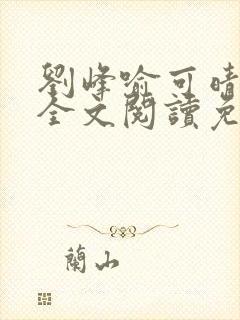 劉峰喻可晴
全文閱讀免
蘭山